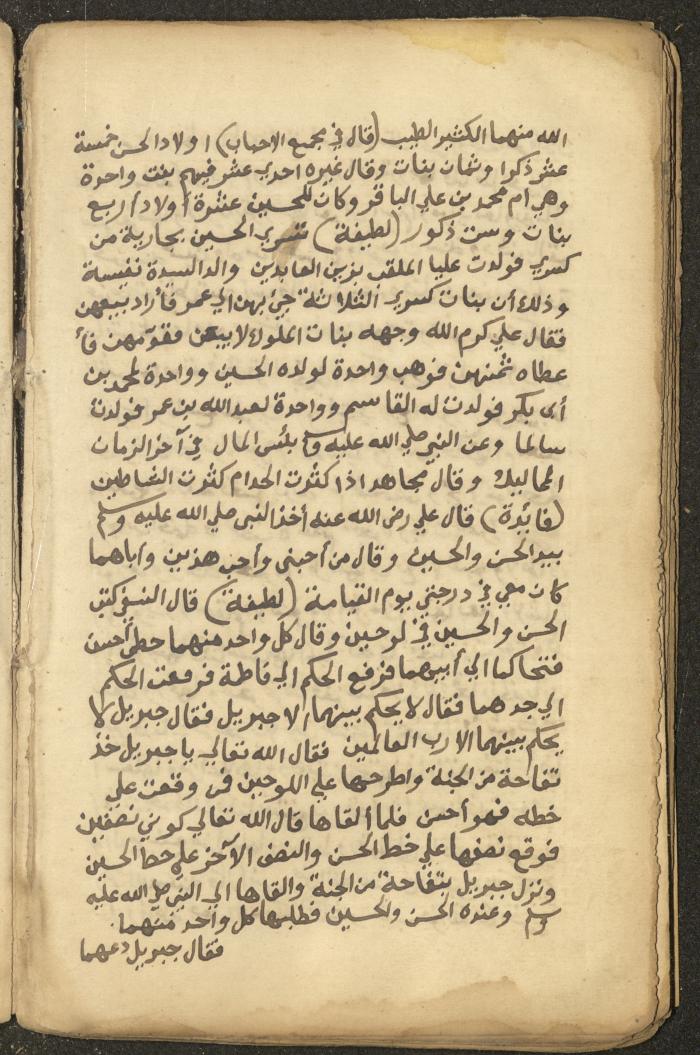 الله منهما الكثير الطيب (قال في مجمع الاحباب) اولاد الحسن خمسة
عشر ذكرا وثمان بنات وقال غيره احدي عشر فيهم بنت واحدة
وهي ام محمد بن علي الباقر وكان للحسين عشرة أولاد أربع
بنات وست ذكور (لطيفة) تسري الحسين بجارية من
كسري فولدت عليا الملقب بزين العابدين والد السيدة نفيسة
وذلك أن بنات كسري الثلاثة جئ بهن الي عمر فأراد بيعهن
فقال علي كرم الله وجهه بنات الملوك لا يبعن فقومهن فأ
عطاه ثمنهن فوهب واحدة لولده الحسين وواحدة لمحمد بن
أبى بكر فولدت له القاسم وواحدة لعبد الله بن عمر فولدت
سالما وعن النبي صلي الله عليه وسلم بئس المال في آخر الزمان
المماليك وقال مجاهد اذا كثرت الخدام كثرت الشياطين
(فائدة) قال علي رضى الله عنه أخذ النبى صلي الله عليه وسلم
بيد الحسن والحسين وقال من أحبنى وأحب هذين وأباهما
كان معي في درجتي يوم القيامة (لطيفة) قال النسفي كتب
الحسن والحسين في لوحين وقال كل واحد منهما خطي أحسن
فتحاكما الي أبيهما فرفع الحكم الي فاطمة فرفعت الحكم
الي جدهما فقال لا يحكم بينهما الا جبريل فقال جبريل لا
يحكم بينهما الا رب العالمين فقال الله تعالي يا جبريل خذ
تفاحة من الجنة واطرحها علي اللوحين فمن وقعت علي
خطه فهو أحسن فلما ألقاها قال الله تعالي كوني نصفين
فوقع نصفها علي خط الحسن والنصف الآخر علي خط الحسين
ونزل جبريل بتفاحة من الجنة والقاها الي النبي صلي الله عليه
وسلم وعنده الحسن والحسين فطلبها كل واحد منهما
فقال جبريل دعهما